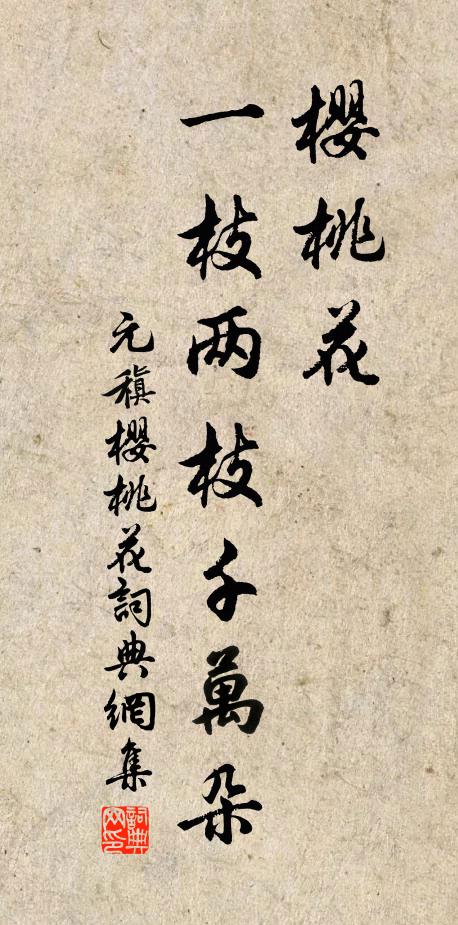 櫻桃花
一枝两枝千萬朵
元稹櫻桃花詞典網集
詞典网印